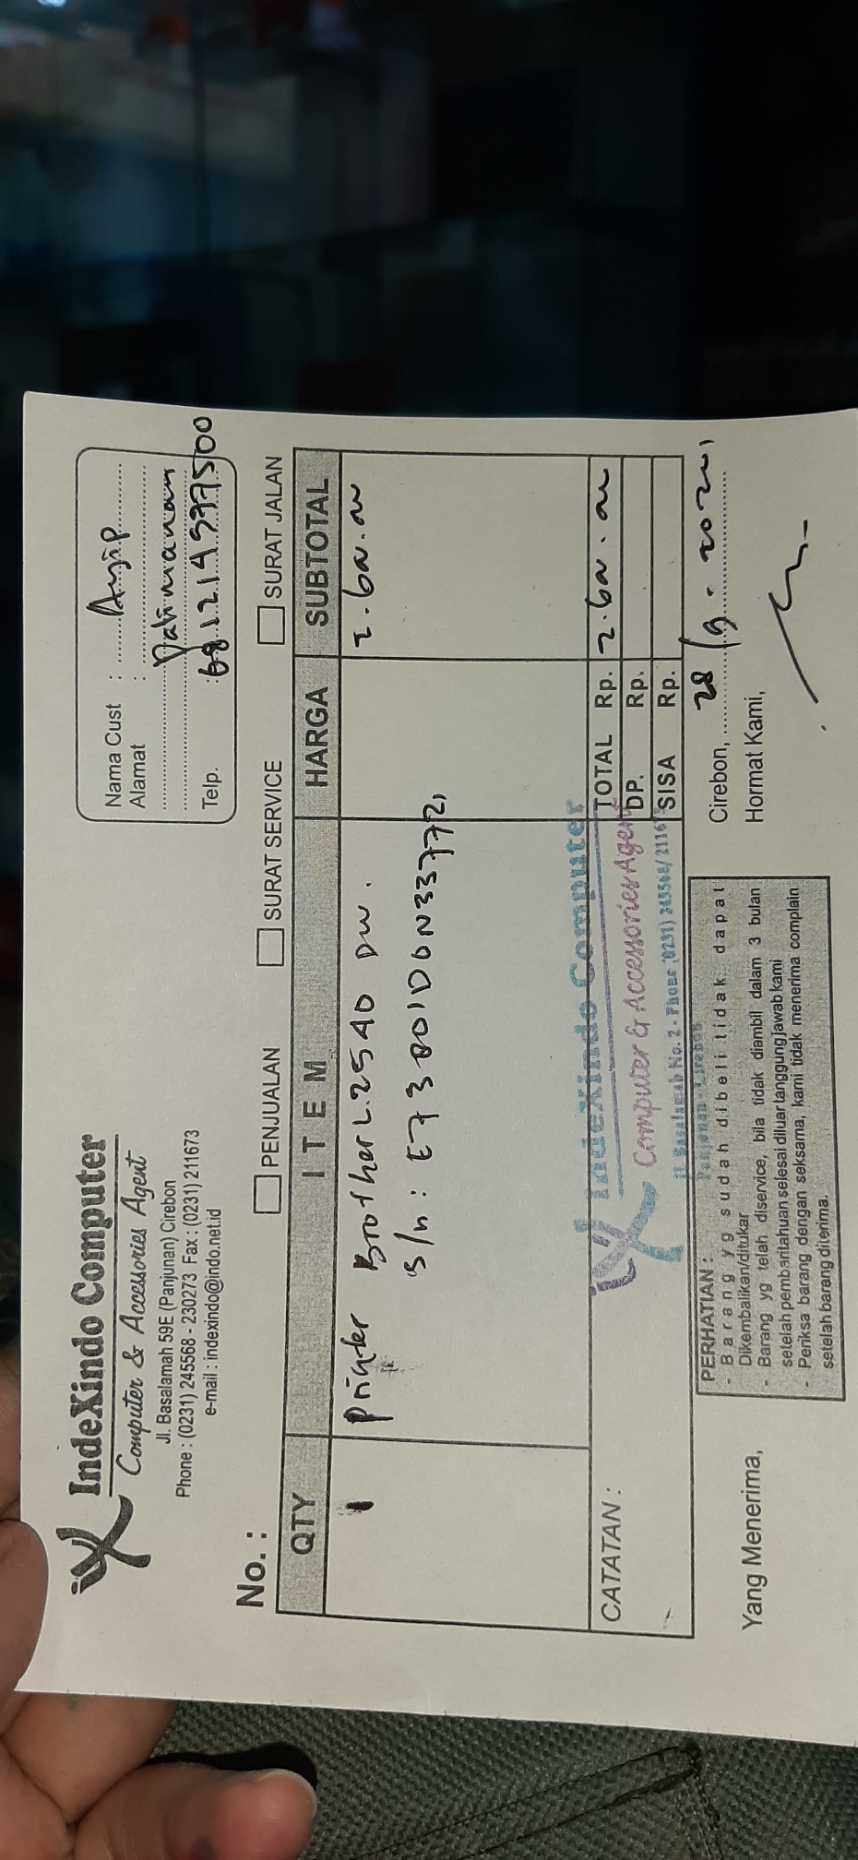 IndeXindo Computer
Computer & Accessories Agent
Jl. Basalamah 59E (Panjunan) Cirebon
Phone : (0231) 245568 - 230273 Fax : (0231) 211673
e-mail : indexindo@indo.net.id
Nama Cust :
Alamat :
Telp. :
No. :
PENJUALAN SURAT SERVICE SURAT JALAN
QTY ITEM HARGA SUBTOTAL
1 Printer Brother L.2540 DW.
S/n :
CATATAN :
TOTAL Rp.
DP. Rp.
SISA Rp.
IndeXindo Computer
Computer & Accessories Agent
Jl. Basalamah No. 2 - Phone (0231)
Panjunan - Cirebon
PERHATIAN :
- Barang yg sudah dibeli tidak dapat
Dikembalikan/ditukar
- Barang yg telah diservice, bila tidak diambil dalam 3 bulan
setelah pembaritahuan selesai diluar tanggung jawab kami
- Periksa barang dengan seksama, kami tidak menerima complain
setelah barang diterima.
Yang Menerima,
Cirebon, 28
Hormat Kami,